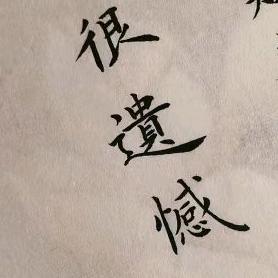 很遺憾